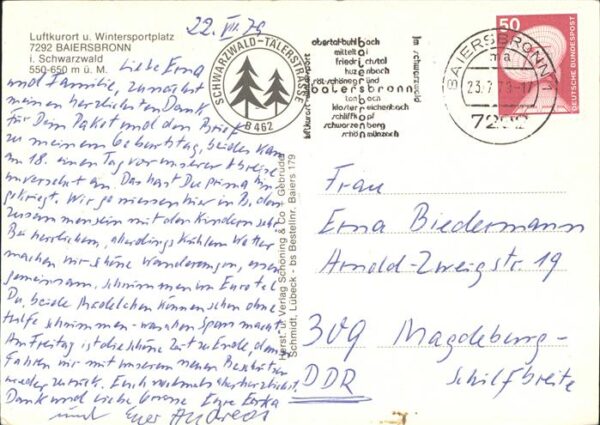 22. VII. 79
Luftkurort u. Wintersportplatz
7292 BAIERSBRONN
i. Schwarzwald
550-650 m ü. M.
Liebe Erna
und Familie, zunächst
meinen herzlichsten Dank
für Dein Paket und den Brief
zu meinem Geburtstag, beides kam
am 18. einen Tag vor unserer Abreise
unversehrt an. Das hast Du prima hin
gekriegt. Wir geniessen hier in B. den
zusammensein mit den Kindern sehr
Bei herrlichem, allerdings kühlem Wetter
machen wir schöne Wanderungen, essen
gemeinsam, schwimmen im Eurotel
Du, beide Mädelchen können schon ohne
Hilfe schwimmen - was Spass macht
Am Freitag ist die schöne Zeit zu Ende, dann
fahren wir mit unserem neuen
wieder zurück. Euch nochmals herzlichst
Dank und liebe Grüsse Eure Erika
und Euer Andreas
SCHWARZWALD-TÄLERSTRASSE
B 462
obertal-buhlbach
mitteltal
friedrichstal
huzenbach
röt-schönegründ
baiersbronn
tonbach
klosterreichenbach
schliffkopf
schwarzenberg
schönmünzach
im schwarzwald
luftkurort
BAIERSBRONN 1
ma
23.-7.79-17
7292
50
DEUTSCHE BUNDESPOST
Herst. u. Verlag Schöning & Co · Gebrüder
Schmidt, Lübeck · bs Bestellnr. Baiers 179
Frau
Erna Biedermann
Arnold-Zweigstr. 19
309 Magdeburg-
Schilfbreite
DDR